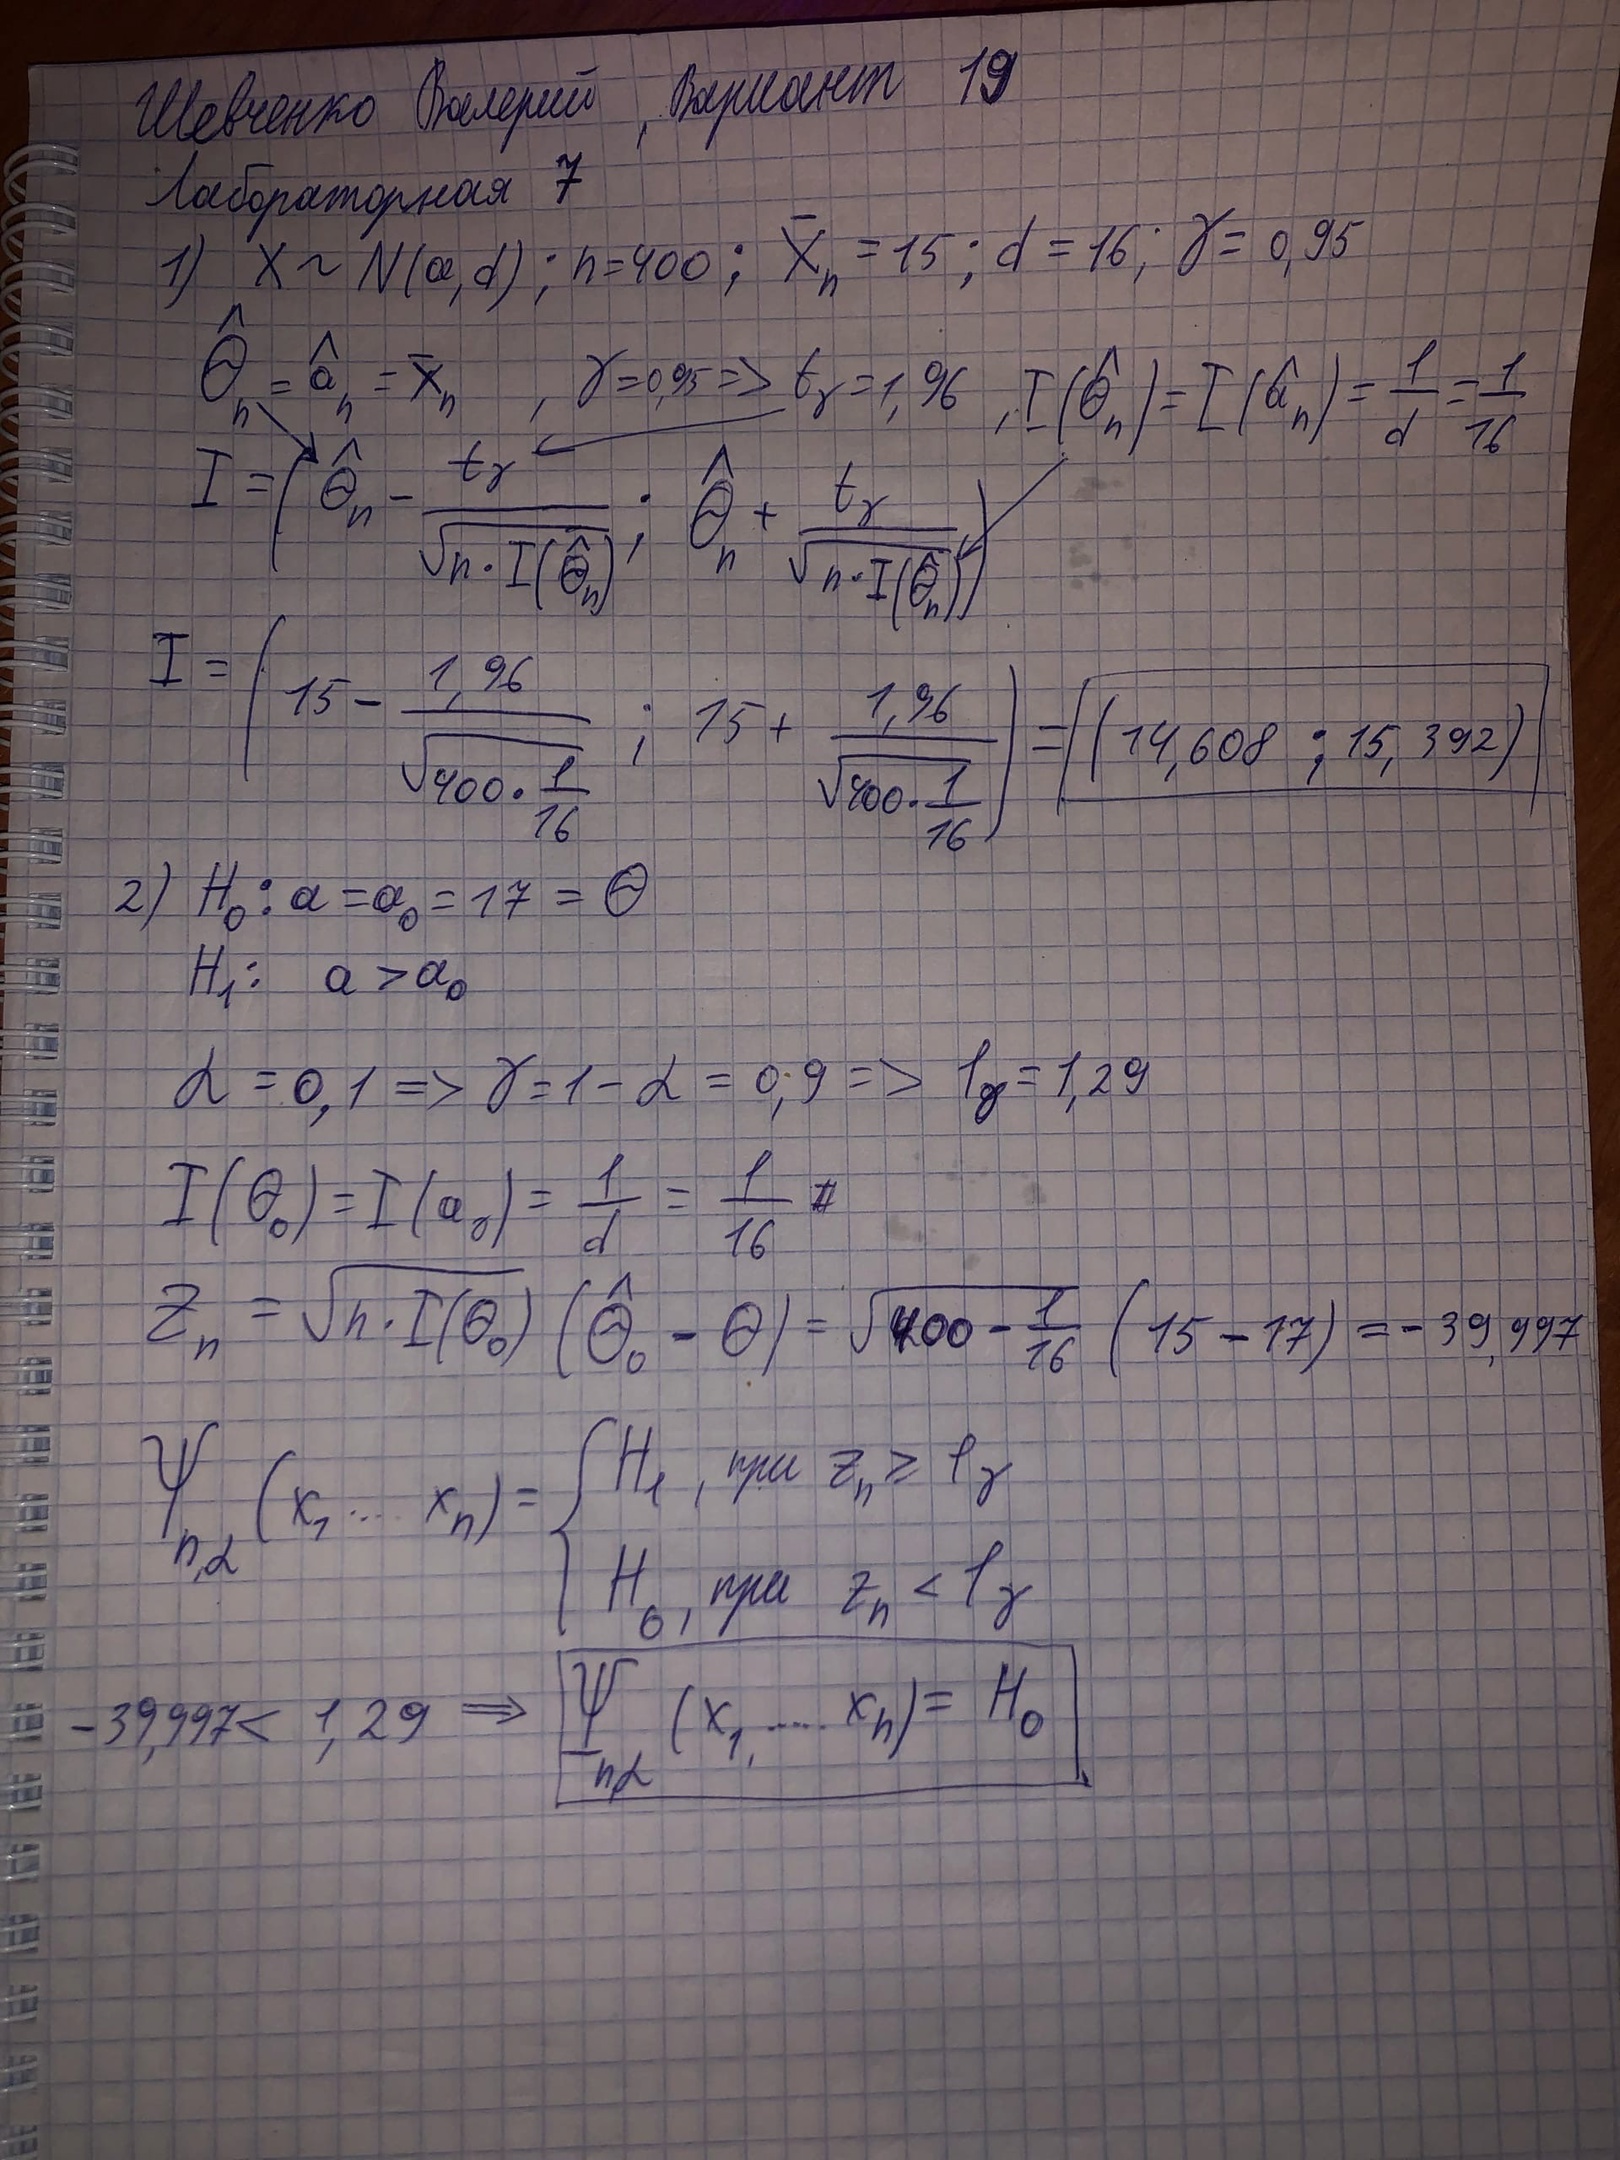 Шевченко Валерий, Вариант 19
Лабораторная 7
1) X ~ N(a,d); n=400; X̄ₙ = 15; d = 16; γ = 0,95
Θ̂ₙ = âₙ = x̄ₙ , γ=0,95 => t_γ = 1,96 , I(Θ̂ₙ) = I(âₙ) = 1/d = 1/16
I = (Θ̂ₙ - t_γ/√(n·I(Θ̂ₙ)) ; Θ̂ₙ + t_γ/√(n·I(Θ̂ₙ)))
I = (15 - 1,96/√(400·1/16) ; 15 + 1,96/√(400·1/16)) = (14,608 ; 15,392)
2) H₀: a = a₀ = 17 = Θ
H₁: a > a₀
α = 0,1 => γ = 1 - α = 0,9 => l_γ = 1,29
I(Θ₀) = I(a₀) = 1/d = 1/16
Zₙ = √(n·I(Θ₀)) (Θ̂₀ - Θ) = √(400 - 1/16) (15 - 17) = -39,997
Ψ_n,α (x₁ .... xₙ) = { H₁, при zₙ ≥ l_γ
H₀, при zₙ < l_γ
-39,997 < 1,29 => Ψ_n,α (x₁, .... xₙ) = H₀